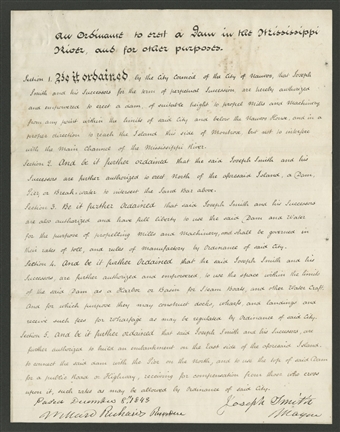 An Ordinance to erect a Dam in the Mississippi
River, and for other purposes.
Section 1. Be it ordained by the City Council of the City of Nauvoo, that Joseph
Smith and his Successors for the term of perpetual Succession are hereby authorized
and empowered to erect a dam of suitable height to propel Mills and Machinery
from any point within the limits of said City and below the Nauvoo House, and in a
proper direction to reach the Island this side of Montrose, but not to interfere
with the Main Channel of the Mississippi River.
Section 2. And be it further ordained that the said Joseph Smith and his
Successors are further authorized to erect North of the aforesaid Island, a Dam,
Pier, or Breakwater to intersect the Sand Bar above.
Section 3. Be it further ordained that said Joseph Smith and his Successors
are also authorized and have full liberty to use the said Dam and Water
for the purpose of propelling Mills and Machinery, and shall be governed in
their rates of toll, and rules of manufactory by Ordinance of said City.
Section 4. And be it further Ordained that the said Joseph Smith and his
Successors, are further authorized and empowered, to use the space within the limits
of the said Dam as a Harbor or Basin for Steam Boats, and other Water Craft
And for which purpose they may construct docks, wharfs and landings and
receive such fees for Wharfage as may be regulated by Ordinance of said City.
Section 5. And be it further ordained that said Joseph Smith and his Successors, are
further authorized to build an embankment on the East side of the aforesaid Island,
to connect the said dam with the Pier on the North, and to use the top of said Dam
for a public Road or Highway, receiving for compensation from those who cross
upon it, such rates as may be allowed by Ordinance of said City.
Passed December 8, 1843.
Willard Richards Recorder
Joseph Smith
Mayor